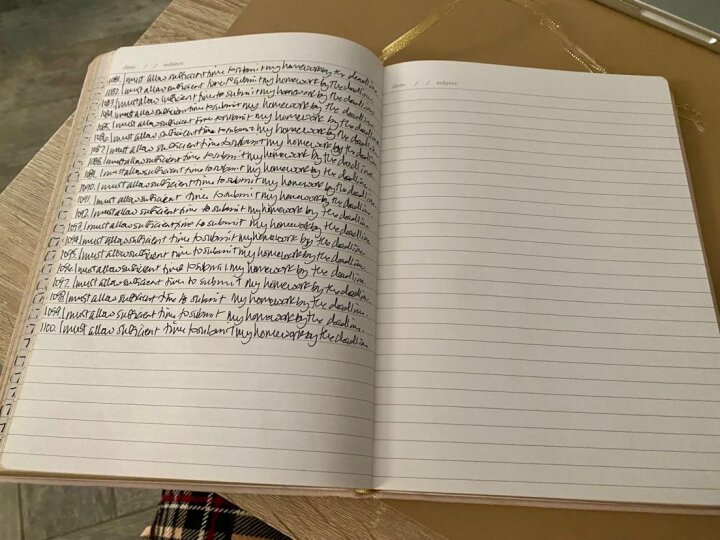 date: / / subject:
1081. I must allow sufficient time to submit my homework by the deadline.
1082. I must allow sufficient time to submit my homework by the deadline.
1083. I must allow sufficient time to submit my homework by the deadline.
1084. I must allow sufficient time to submit my homework by the deadline.
1085. I must allow sufficient time to submit my homework by the deadline.
1086. I must allow sufficient time to submit my homework by the deadline.
1087. I must allow sufficient time to submit my homework by the deadline.
1088. I must allow sufficient time to submit my homework by the deadline.
1089. I must allow sufficient time to submit my homework by the deadline.
1090. I must allow sufficient time to submit my homework by the deadline.
1091. I must allow sufficient time to submit my homework by the deadline.
1092. I must allow sufficient time to submit my homework by the deadline.
1093. I must allow sufficient time to submit my homework by the deadline.
1094. I must allow sufficient time to submit my homework by the deadline.
1095. I must allow sufficient time to submit my homework by the deadline.
1096. I must allow sufficient time to submit my homework by the deadline.
1097. I must allow sufficient time to submit my homework by the deadline.
1098. I must allow sufficient time to submit my homework by the deadline.
1099. I must allow sufficient time to submit my homework by the deadline.
1100. I must allow sufficient time to submit my homework by the deadline.
date: / / subject: